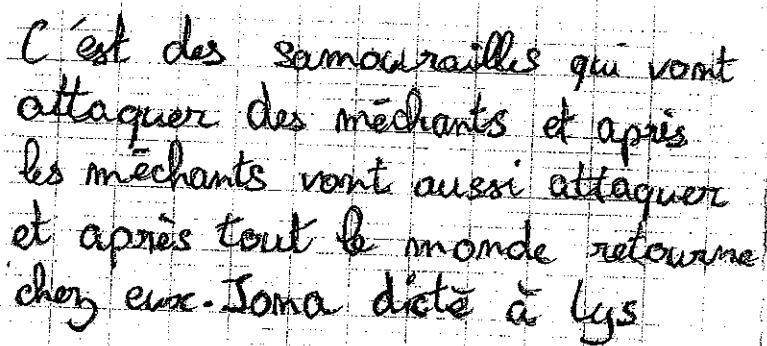 C'est des samourailles qui vont
attaquer des méchants et après
les méchants vont aussi attaquer
et après tout le monde retourne
chez eux. Joma dicté à Lys